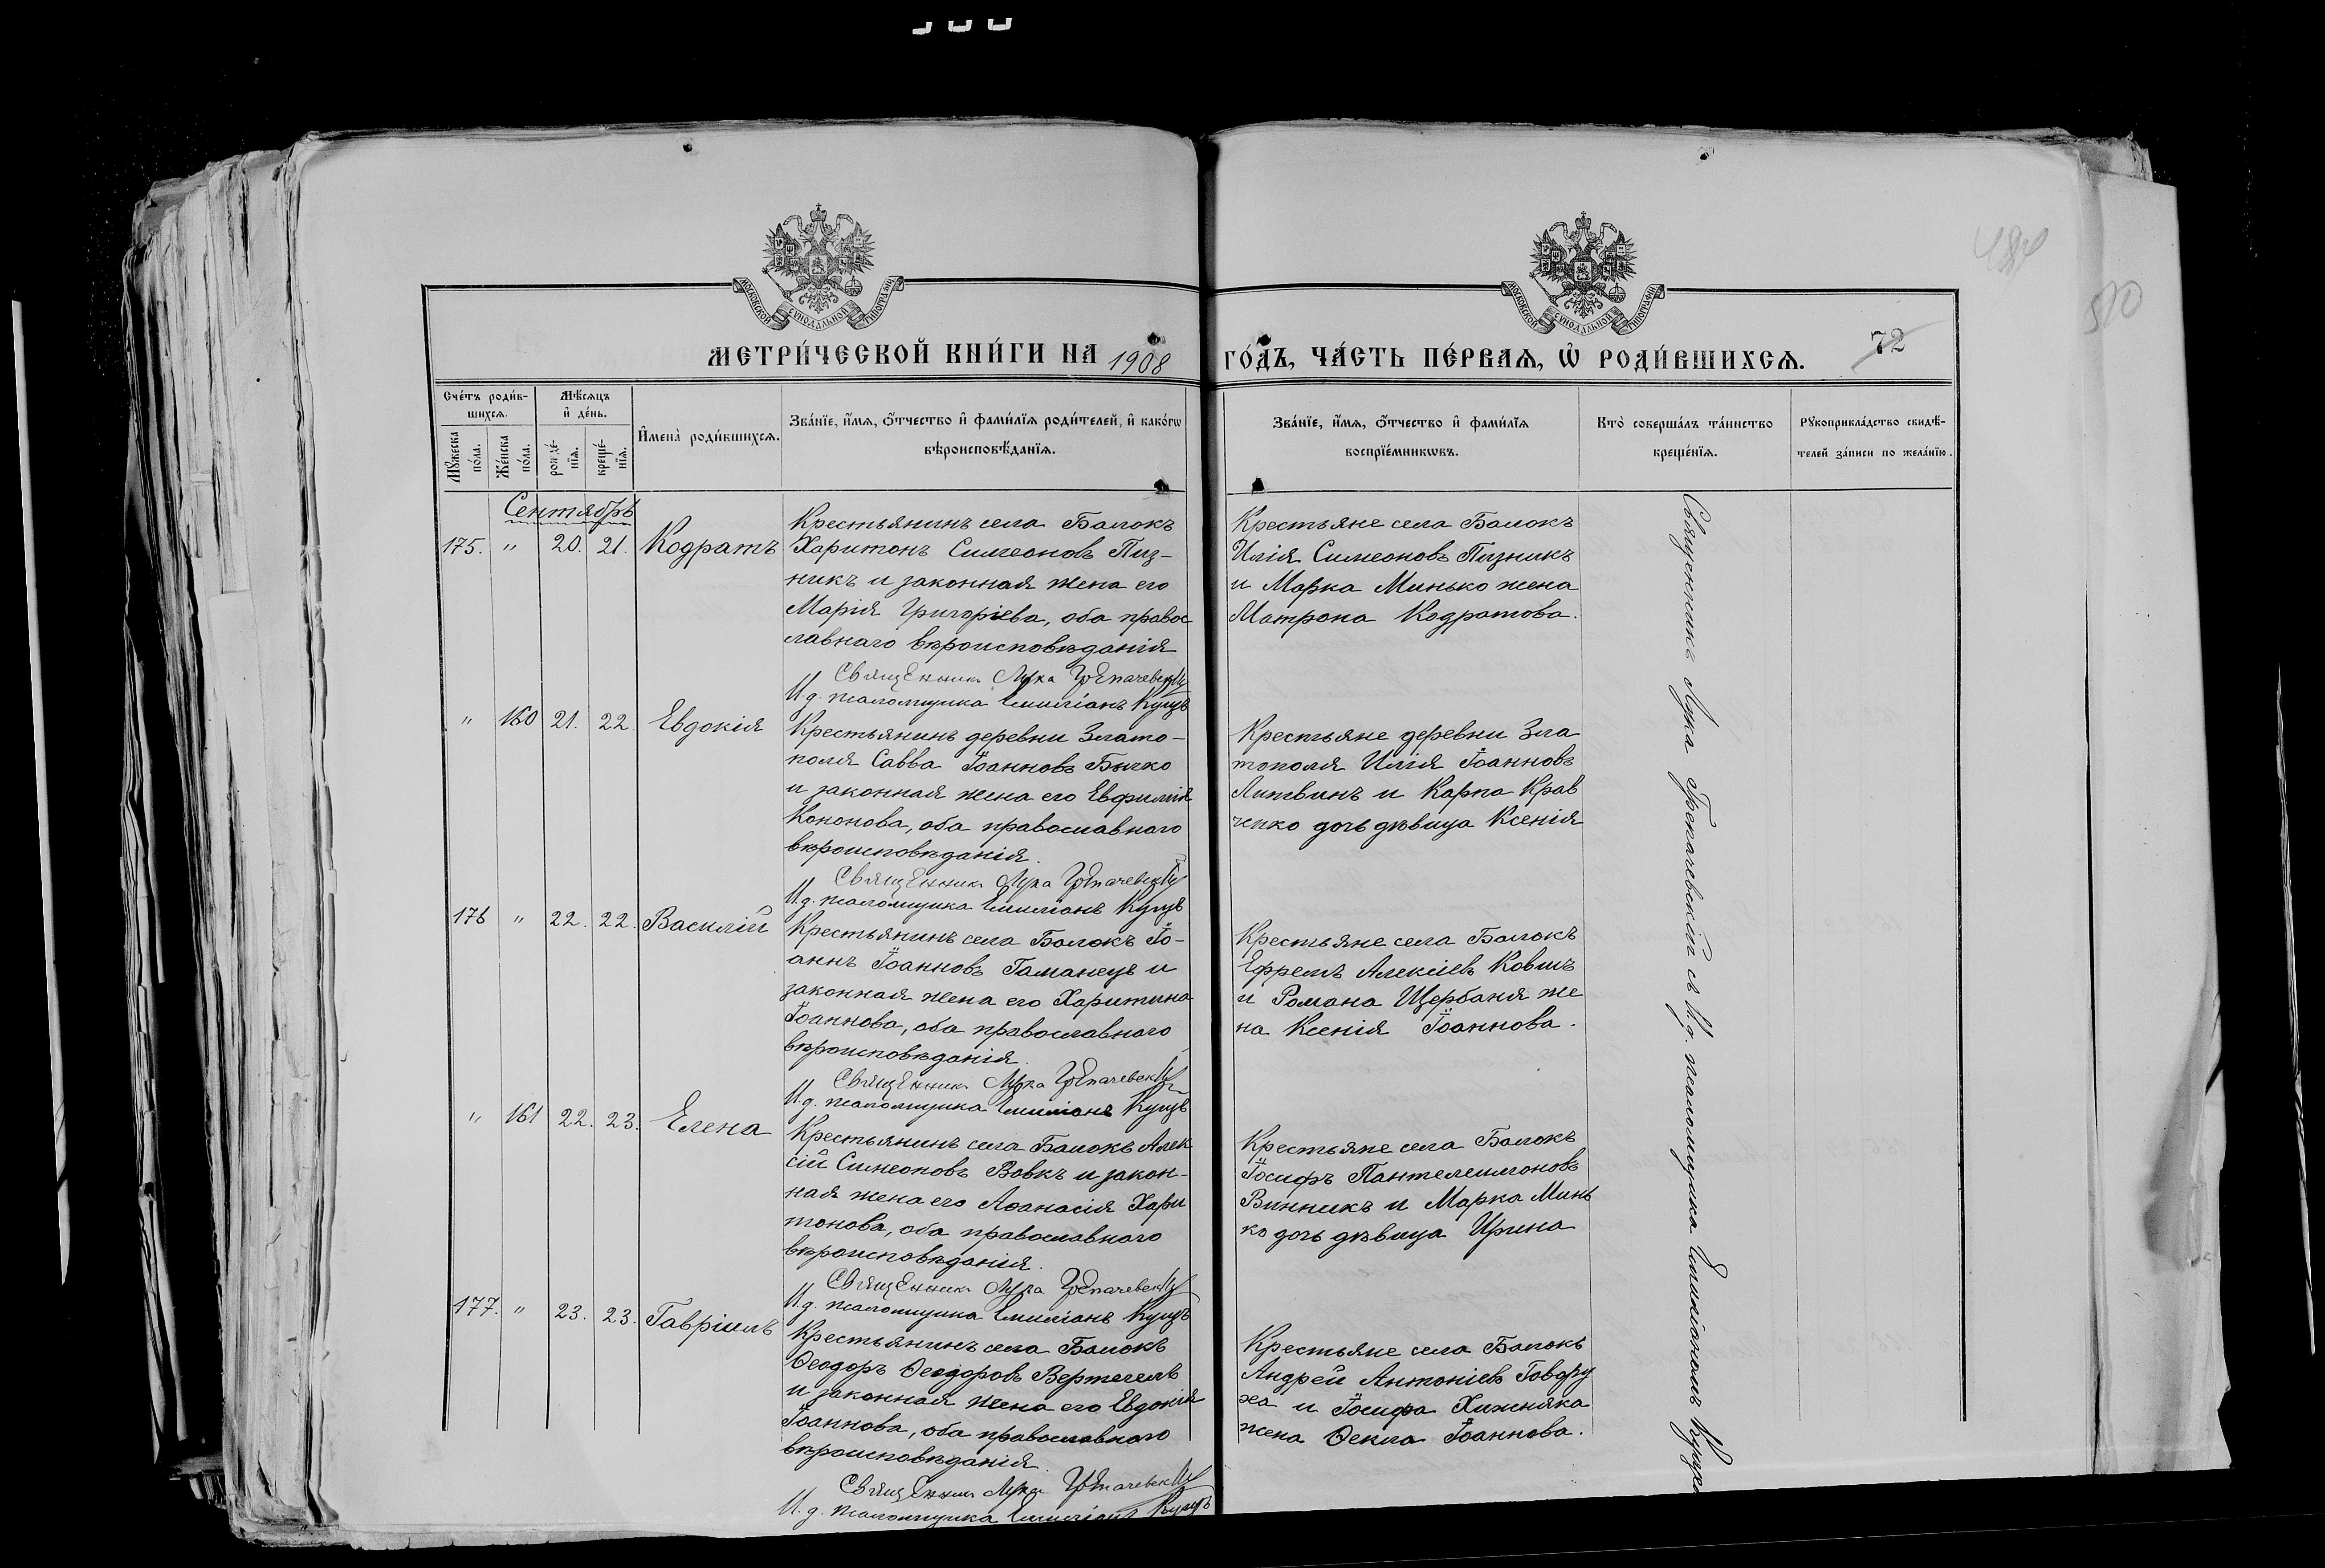 МОСКОВСКОЙ СѴНОДАЛЬНОЙ ТИПОГРАФІИ
МОСКОВСКОЙ СѴНОДАЛЬНОЙ ТИПОГРАФІИ
МЕТРИ́ЧЕСКОЙ КНИ́ГИ НА 1908
ГО́ДЪ, ЧА́СТЬ ПЕ́РВАѦ, Ѡ҆ РОДИ́ВШИХСѦ.
72
510
Сче́тъ роди́в-
шихсѧ.
Мꙋ́жеска
по́ла.
Же́нска
по́ла.
Мѣ́сѧцъ
и҆ де́нь.
рожде́-
нїѧ.
креще́-
нїѧ.
И҆мена̀ роди́вшихсѧ.
Зва́нїе, и҆́мѧ, ѻ҆́тчество и҆ фами́лїѧ роди́телей, и҆ како́гѡ
вѣроисповѣ́данїѧ.
Зва́нїе, и҆́мѧ, ѻ҆́тчество и҆ фами́лїѧ
воспрїе́мникѡвъ.
Кто̀ соверша́лъ та́инство
креще́нїѧ.
Рꙋкоприкла́дство свидѣ́-
телей за́писи по жела́нїю.
Сентябрь
175. " 20. 21. Кодратъ
Крестьянинъ села Балокъ
Харитонъ Симеоновъ Пиз-
никъ и законная жена его
Марія Григоріева, оба правос
лавнаго вѣроисповѣданія
Священникъ Лука Грепачевскій
И. д. псаломщика Емиліанъ Кущъ
Крестьяне села Балокъ
Илія Симеоновъ Пизникъ
и Марка Минько жена
Матрона Кодратова.
" 160 21. 22. Евдокія
Крестьянинъ деревни Злато-
поля Савва Іоанновъ Бычко
и законная жена его Евфимія
Кононова, оба православнаго
вѣроисповѣданія.
Священникъ Лука Грепачевскій
И. д. псаломщика Емиліанъ Кущъ
Крестьяне деревни Зла
тополя Илія Іоанновъ
Литвинъ и Карпа Крав
ченко дочь дѣвица Ксенія
176 " 22. 22. Василій
Крестьянинъ села Балокъ Іо-
аннъ Іоанновъ Гаманецъ и
законная жена его Харитина
Іоаннова, оба православнаго
вѣроисповѣданія.
Священникъ Лука Грепачевскій
И. д. псаломщика Емиліанъ Кущъ
Крестьяне села Балокъ
Ефремъ Алексіевъ Ковшъ
и Романа Щербаня же
на Ксенія Іоаннова.
" 161 22. 23. Елена
Крестьянинъ села Балокъ Алек
сій Симеоновъ Вовкъ и закон-
ная жена его Аѳанасія Хари
тонова, оба православнаго
вѣроисповѣданія.
Священникъ Лука Грепачевскій
И. д. псаломщика Емиліанъ Кущъ
Крестьяне села Балокъ
Іосифъ Пантелеимоновъ
Винникъ и Марка Минь
ко дочь дѣвица Ирина
177. " 23. 23. Гавріилъ
Крестьянинъ села Балокъ
Ѳеодоръ Ѳеодоровъ Вертегелъ
и законная жена его Евдокія
Іоаннова, оба православнаго
вѣроисповѣданія.
Священникъ Лука Грепачевскій
И. д. псаломщика Емиліанъ Кущъ
Крестьяне села Балокъ
Андрей Антоніевъ Говору
ха и Іосифа Хижняка
жена Ѳекла Іоаннова.
Священникъ Лука Грепачевскій съ И. д. псаломщика Емиліаномъ Кущемъ